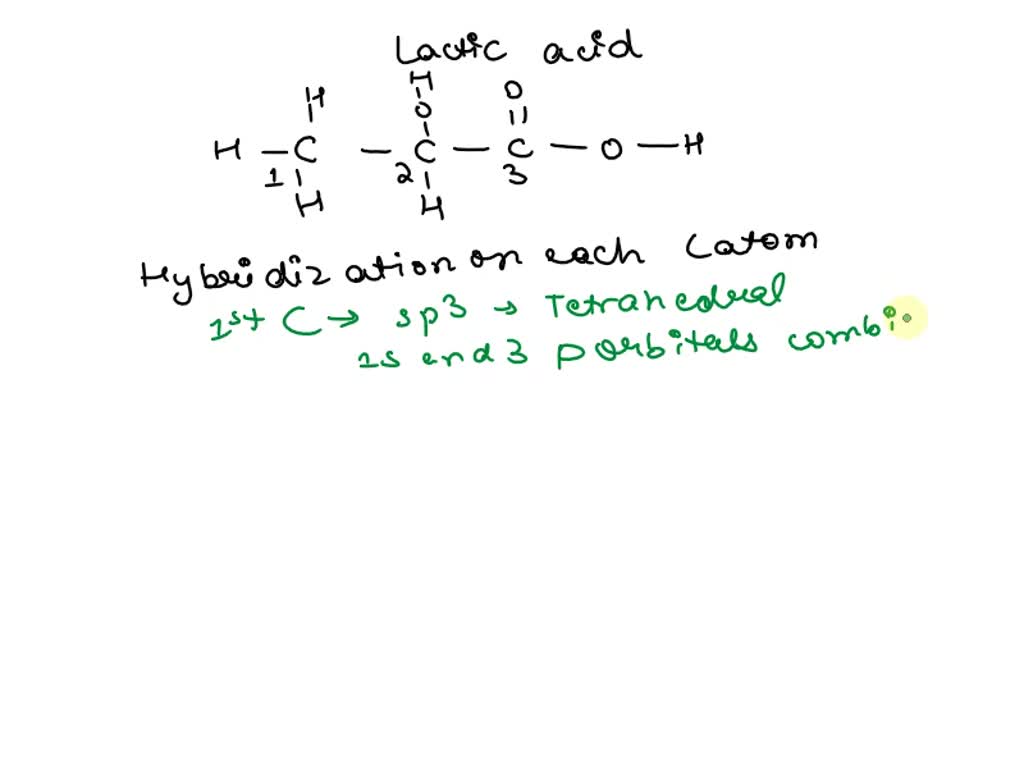 Lactic acid
H H O
O
H - C - C - C - O - H
1 2 3
H H
Hybridization on each C atom
1st C → sp3 → Tetrahedral
1s and 3 p orbitals combi